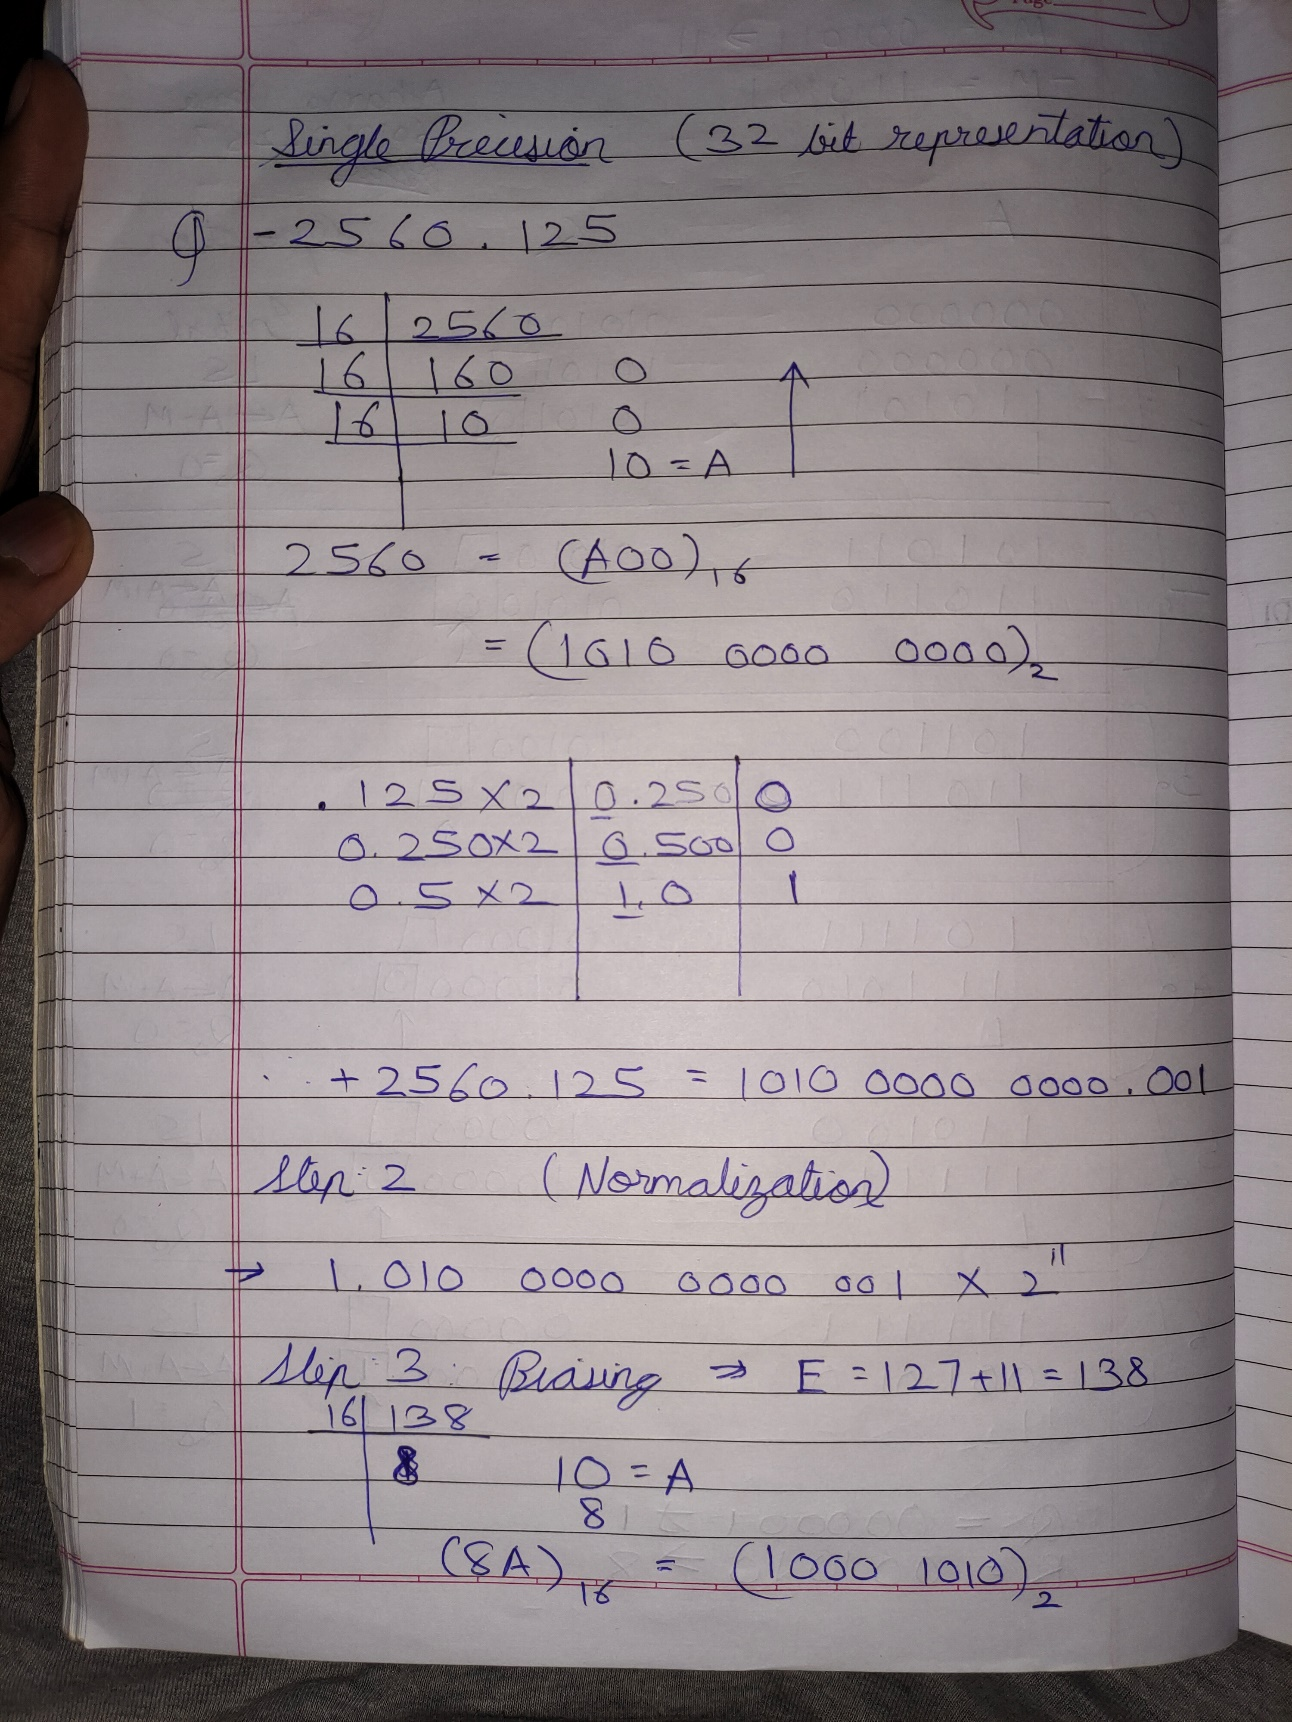 Page
Single Precision (32 bit representation)
Q -2560.125
16 2560
16 160 0
16 10 0
10 = A
2560 = (A00)16
= (1010 0000 0000)2
.125×2 0.250 0
0.250×2 0.500 0
0.5×2 1.0 1
∴ +2560.125 = 1010 0000 0000.001
Step: 2 (Normalization)
→ 1.010 0000 0000 001 × 2^11
Step: 3: Biasing ⇒ E = 127+11 = 138
16 138
8 10 = A
8
(8A)16 = (1000 1010)2